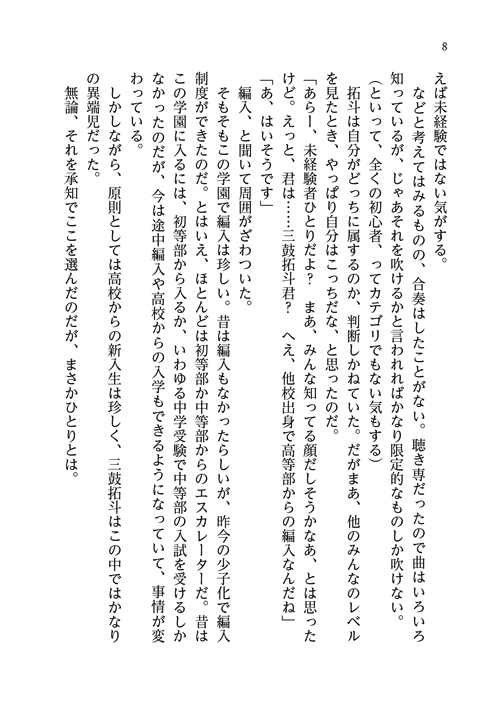 8
えば未経験ではない気がする。
　などと考えてはみるものの、合奏はしたことがない。聴き専だったので曲はいろいろ
知っているが、じゃあそれを吹けるかと言われればかなり限定的なものしか吹けない。
（といって、全くの初心者、ってカテゴリでもない気もする）
　拓斗は自分がどっちに属するのか、判断しかねていた。だがまあ、他のみんなのレベル
を見たとき、やっぱり自分はこっちだな、と思ったのだ。
「あらー、未経験者ひとりだよ？　まあ、みんな知ってる顔だしそうかなあ、とは思った
けど。えっと、君は……三鼓拓斗君？　へえ、他校出身で高等部からの編入なんだね」
「あ、はいそうです」
　編入、と聞いて周囲がざわついた。
　そもそもこの学園で編入は珍しい。昔は編入もなかったらしいが、昨今の少子化で編入
制度ができたのだ。とはいえ、ほとんどは初等部か中等部からのエスカレーターだ。昔は
この学園に入るには、初等部から入るか、いわゆる中学受験で中等部の入試を受けるしか
なかったのだが、今は途中編入や高校からの入学もできるようになっていて、事情が変
わっている。
　しかしながら、原則としては高校からの新入生は珍しく、三鼓拓斗はこの中ではかなり
の異端児だった。
　無論、それを承知でここを選んだのだが、まさかひとりとは。